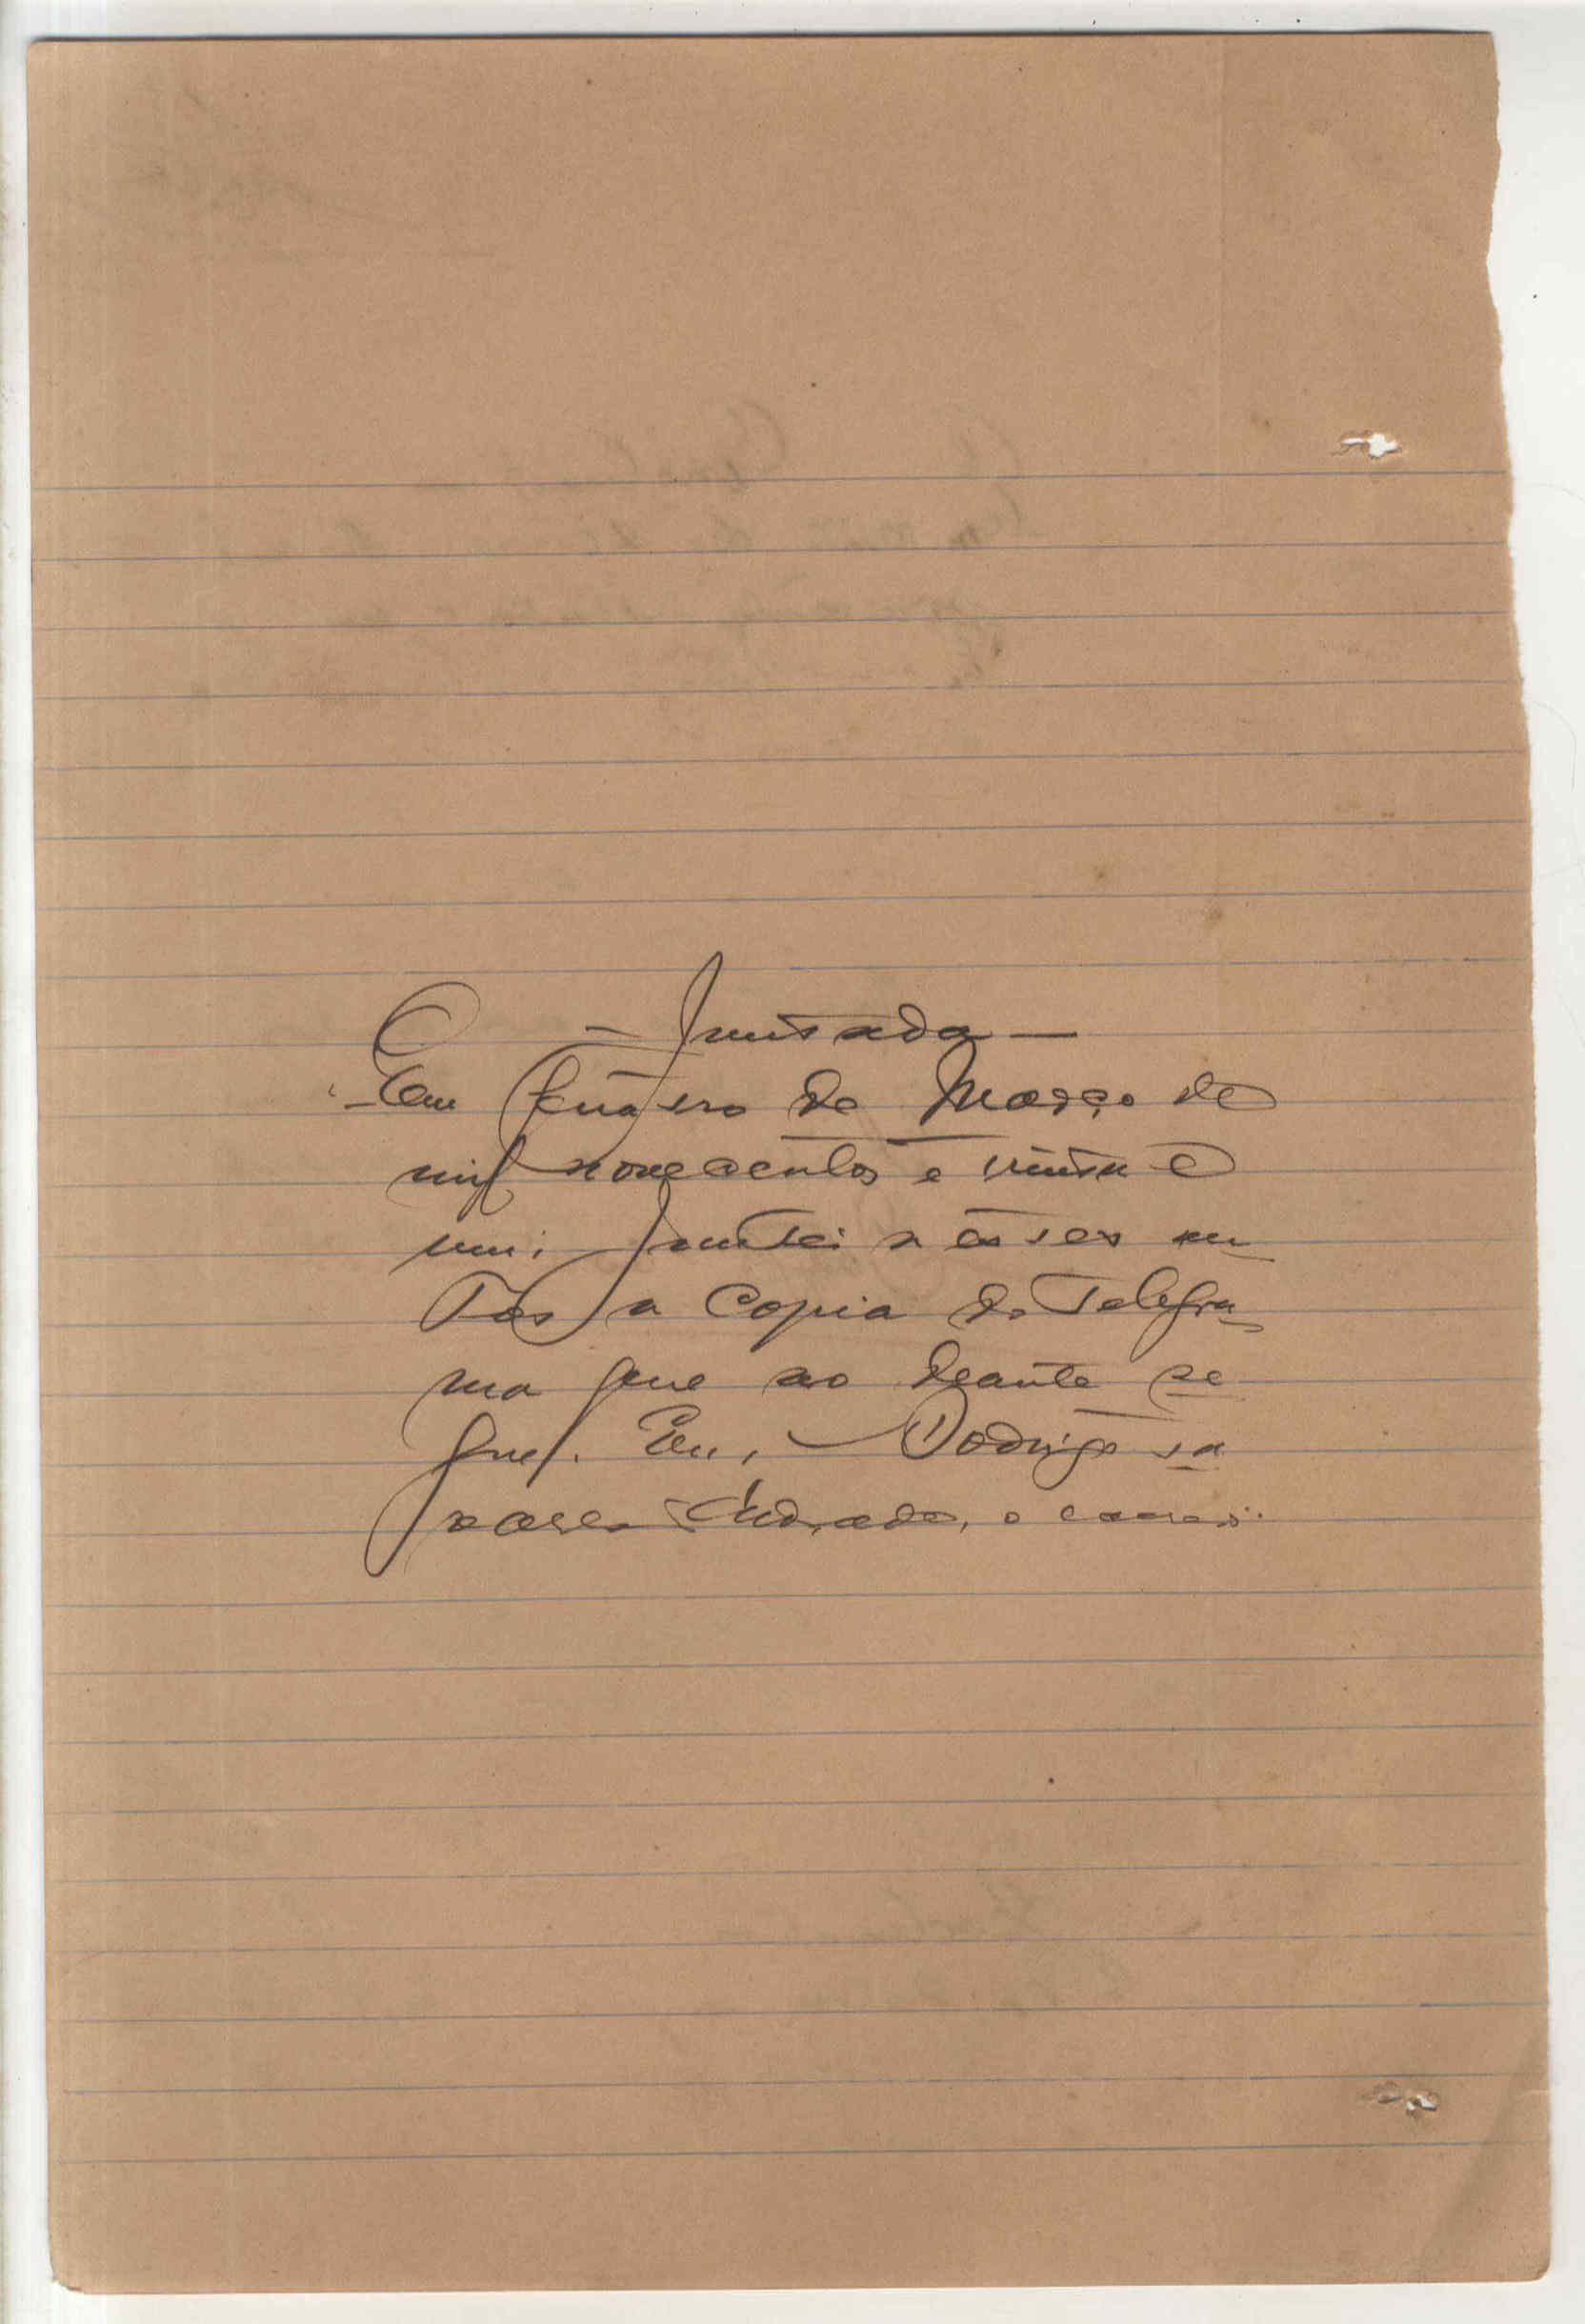 — Juntada —
Em de Março de
mil novecentos e vinte e
um; juntei a estes au
tos a copia do telegra
ma que ao deante se
gue. Eu, Rodrigo
Andrade, o escrevi.